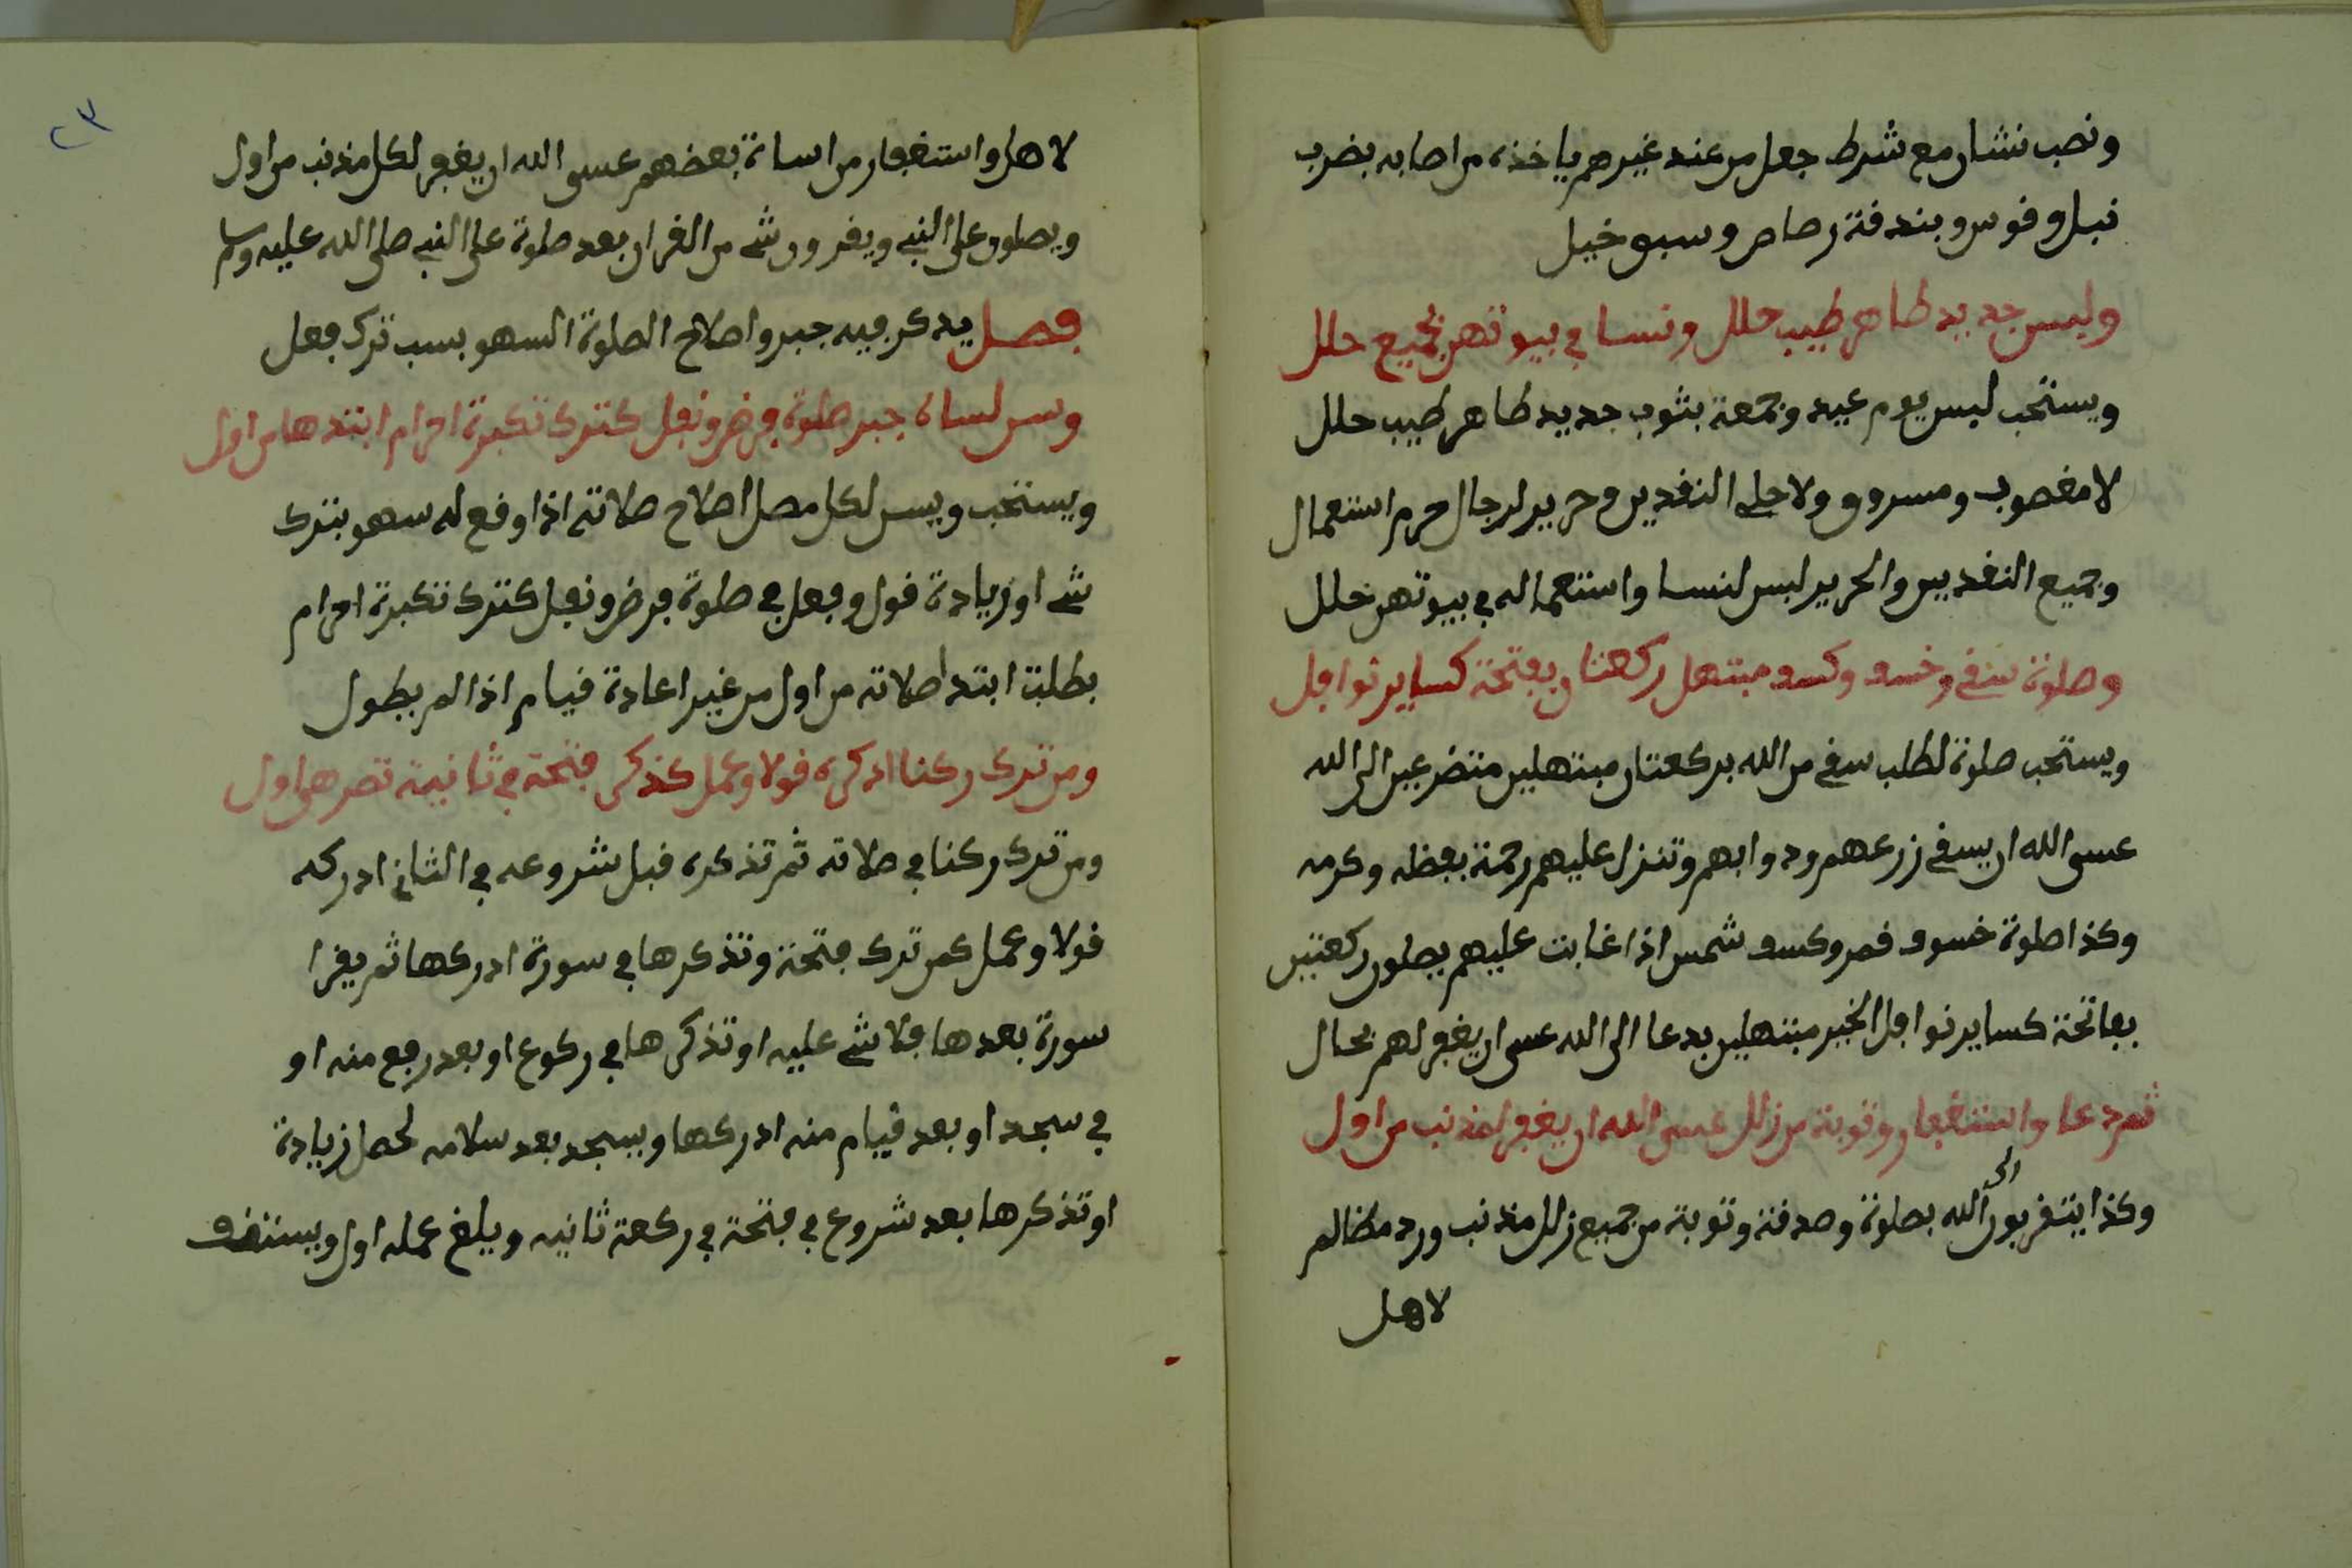 ونصب نشان مع شرط جعل من عند غيرهم ياخذه من اصابه بضرب
نبل وقوس وبندقة رصاص وسبق خيل
ولبس جديد طاهر طيب حلل ونسا في بيوتهن بجميع حلل
ويستحب لبس يوم عيد وجمعة بثوب جديد طاهر طيب حلل
لا مغصوب ومسروق ولا حلي النقدين وحرير لرجال حرم استعمال
وجميع النقديين والحرير لبس لنسا واستعماله في بيوتهن حلل
وصلوة سقي وخسف وكسف مبتهل ركعتان بفتحة كساير نوافل
ويستحب صلوة لطلب سقي من الله بركعتان مبتهلين متضرعين الى الله
عسى الله ان يسقي زرعهم ودوابهم وتنزل عليهم رحمة بفضله وكرمه
وكذا صلوة خسوف قمر وكسف شمس اذا غابت عليهم يصلون ركعتين
بفاتحة كساير نوافل الخير مبتهلين بدعا الى الله عسى ان يغفر لهم بحال
ثم دعا واستغفار وتوبة من زلل عسى الله ان يغفر لمذنب من اول
وكذا يتقربون الى الله بصلوة وصدقة وتوبة من جميع زلل مذنب ورد مظالم
لاهل
٢٣
لاهل واستغفار من اساة بعضهم عسى الله ان يغفر لكل مذنب من اول
ويصلون على النبي ويقرون شي من القران بعد صلوة على النبي صلى الله عليه وسلم
فصل يذكر فيه جبر واصلاح الصلوة السهو بسب ترك فعل
وسن لساه جبر صلوة فرض ونفل كترك تكبرة احرام ابتدها من اول
ويستحب ويسن لكل مصل اصلاح صلاته اذا وقع له سهو بترك
شي او زيادة قول وفعل في صلوة فرض ونفل كترك تكبرة احرام
بطلت ابتدا صلاته من اول من غير اعادة قيام اذا لم يطول
ومن ترك ركنا ادركه قولا وعمل كذكر فتحة في ثانية تصر هي اول
ومن ترك ركنا في صلاته ثم تذكره قبل شروعه في الثاني ادركه
قولا وعمل كمن ترك فتحة وتذكرها في سورة ادركها ثم يقرا
سورة بعدها فلا شي عليه او تذكرها في ركوع او بعد رفع منه او
في سجد او بعد قيام منه ادركها ويسجد بعد سلامه لحصل زيادة
او تذكرها بعد شروع في فتحة في ركعة ثانيه ويلغ عمله اول ويستنف